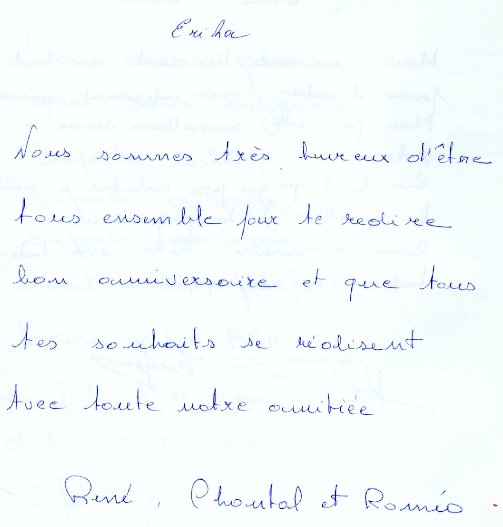 Erika
Nous sommes très heureux d'être
tous ensemble pour te redire
bon anniversaire et que tous
tes souhaits se réalisent
Avec toute notre amitiée
René, Chantal et Roméo.